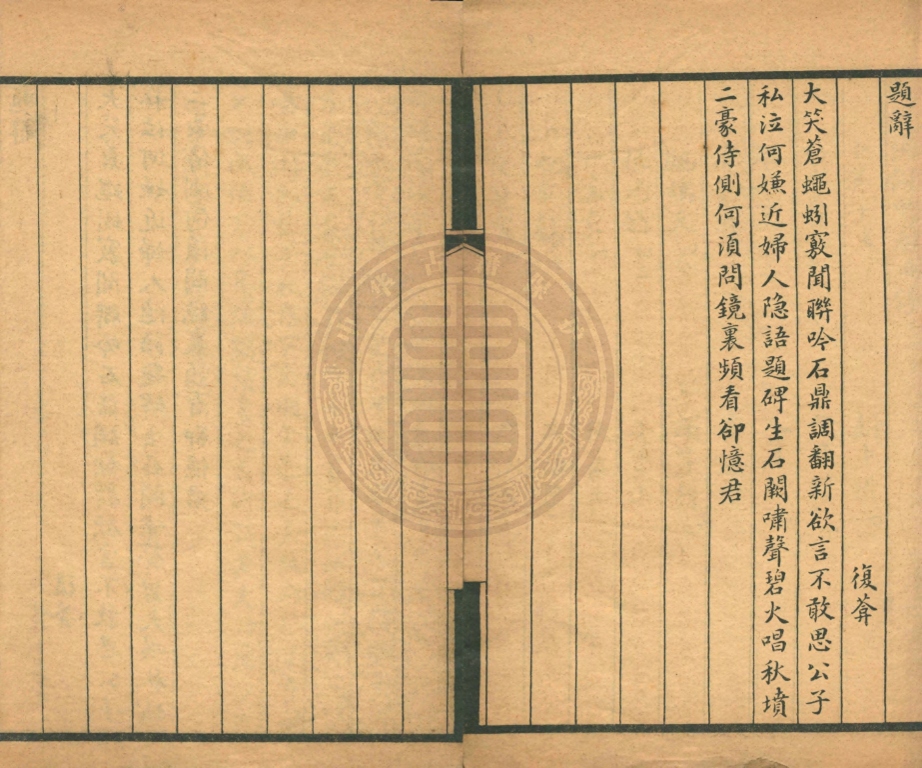 題辭
復葊
大笑蒼蠅蚓竅聞聯吟石鼎調翻新欲言不敢思公子
私泣何嫌近婦人隐語題碑生石闕嘯聲碧火唱秋墳
二豪侍側何須問鏡裏頻看卻憶君